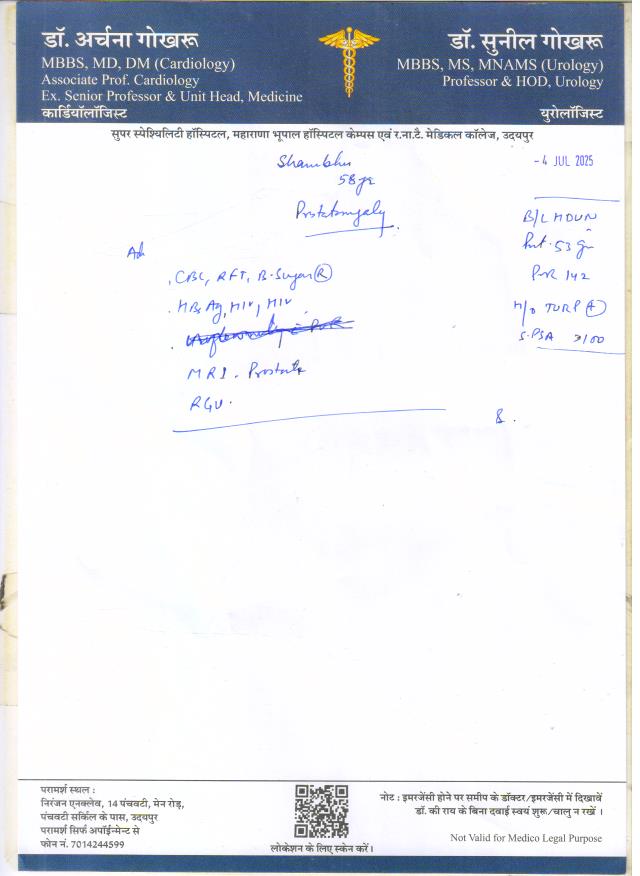 डॉ. अर्चना गोखरू
MBBS, MD, DM (Cardiology)
Associate Prof. Cardiology
Ex. Senior Professor & Unit Head, Medicine
कार्डियॉलॉजिस्ट
डॉ. सुनील गोखरू
MBBS, MS, MNAMS (Urology)
Professor & HOD, Urology
युरोलॉजिस्ट
सुपर स्पेश्यिलिटी हॉस्पिटल, महाराणा भूपाल हॉस्पिटल केम्पस एवं र.ना.टै. मेडिकल कॉलेज, उदयपुर
Shambhu
58 yr
- 4 JUL 2025
B/L HDUN
53 gm
PVR 142
H/o TURP +
S. PSA >100
Ad
. CBC, RFT, B. Sugar R
. HBsAg, HIV, HIV
MRI . Prostate
RGU .
परामर्श स्थल :
निरंजन एनक्लेव, 14 पंचवटी, मेन रोड़,
पंचवटी सर्किल के पास, उदयपुर
परामर्श सिर्फ अपॉईन्मेन्ट से
फोन नं. 7014244599
लोकेशन के लिए स्केन करें।
नोट : इमरजेंसी होने पर समीप के डॉक्टर/इमरजेंसी में दिखावें
डॉ. की राय के बिना दवाई स्वयं शुरू/चालु न रखें ।
Not Valid for Medico Legal Purpose